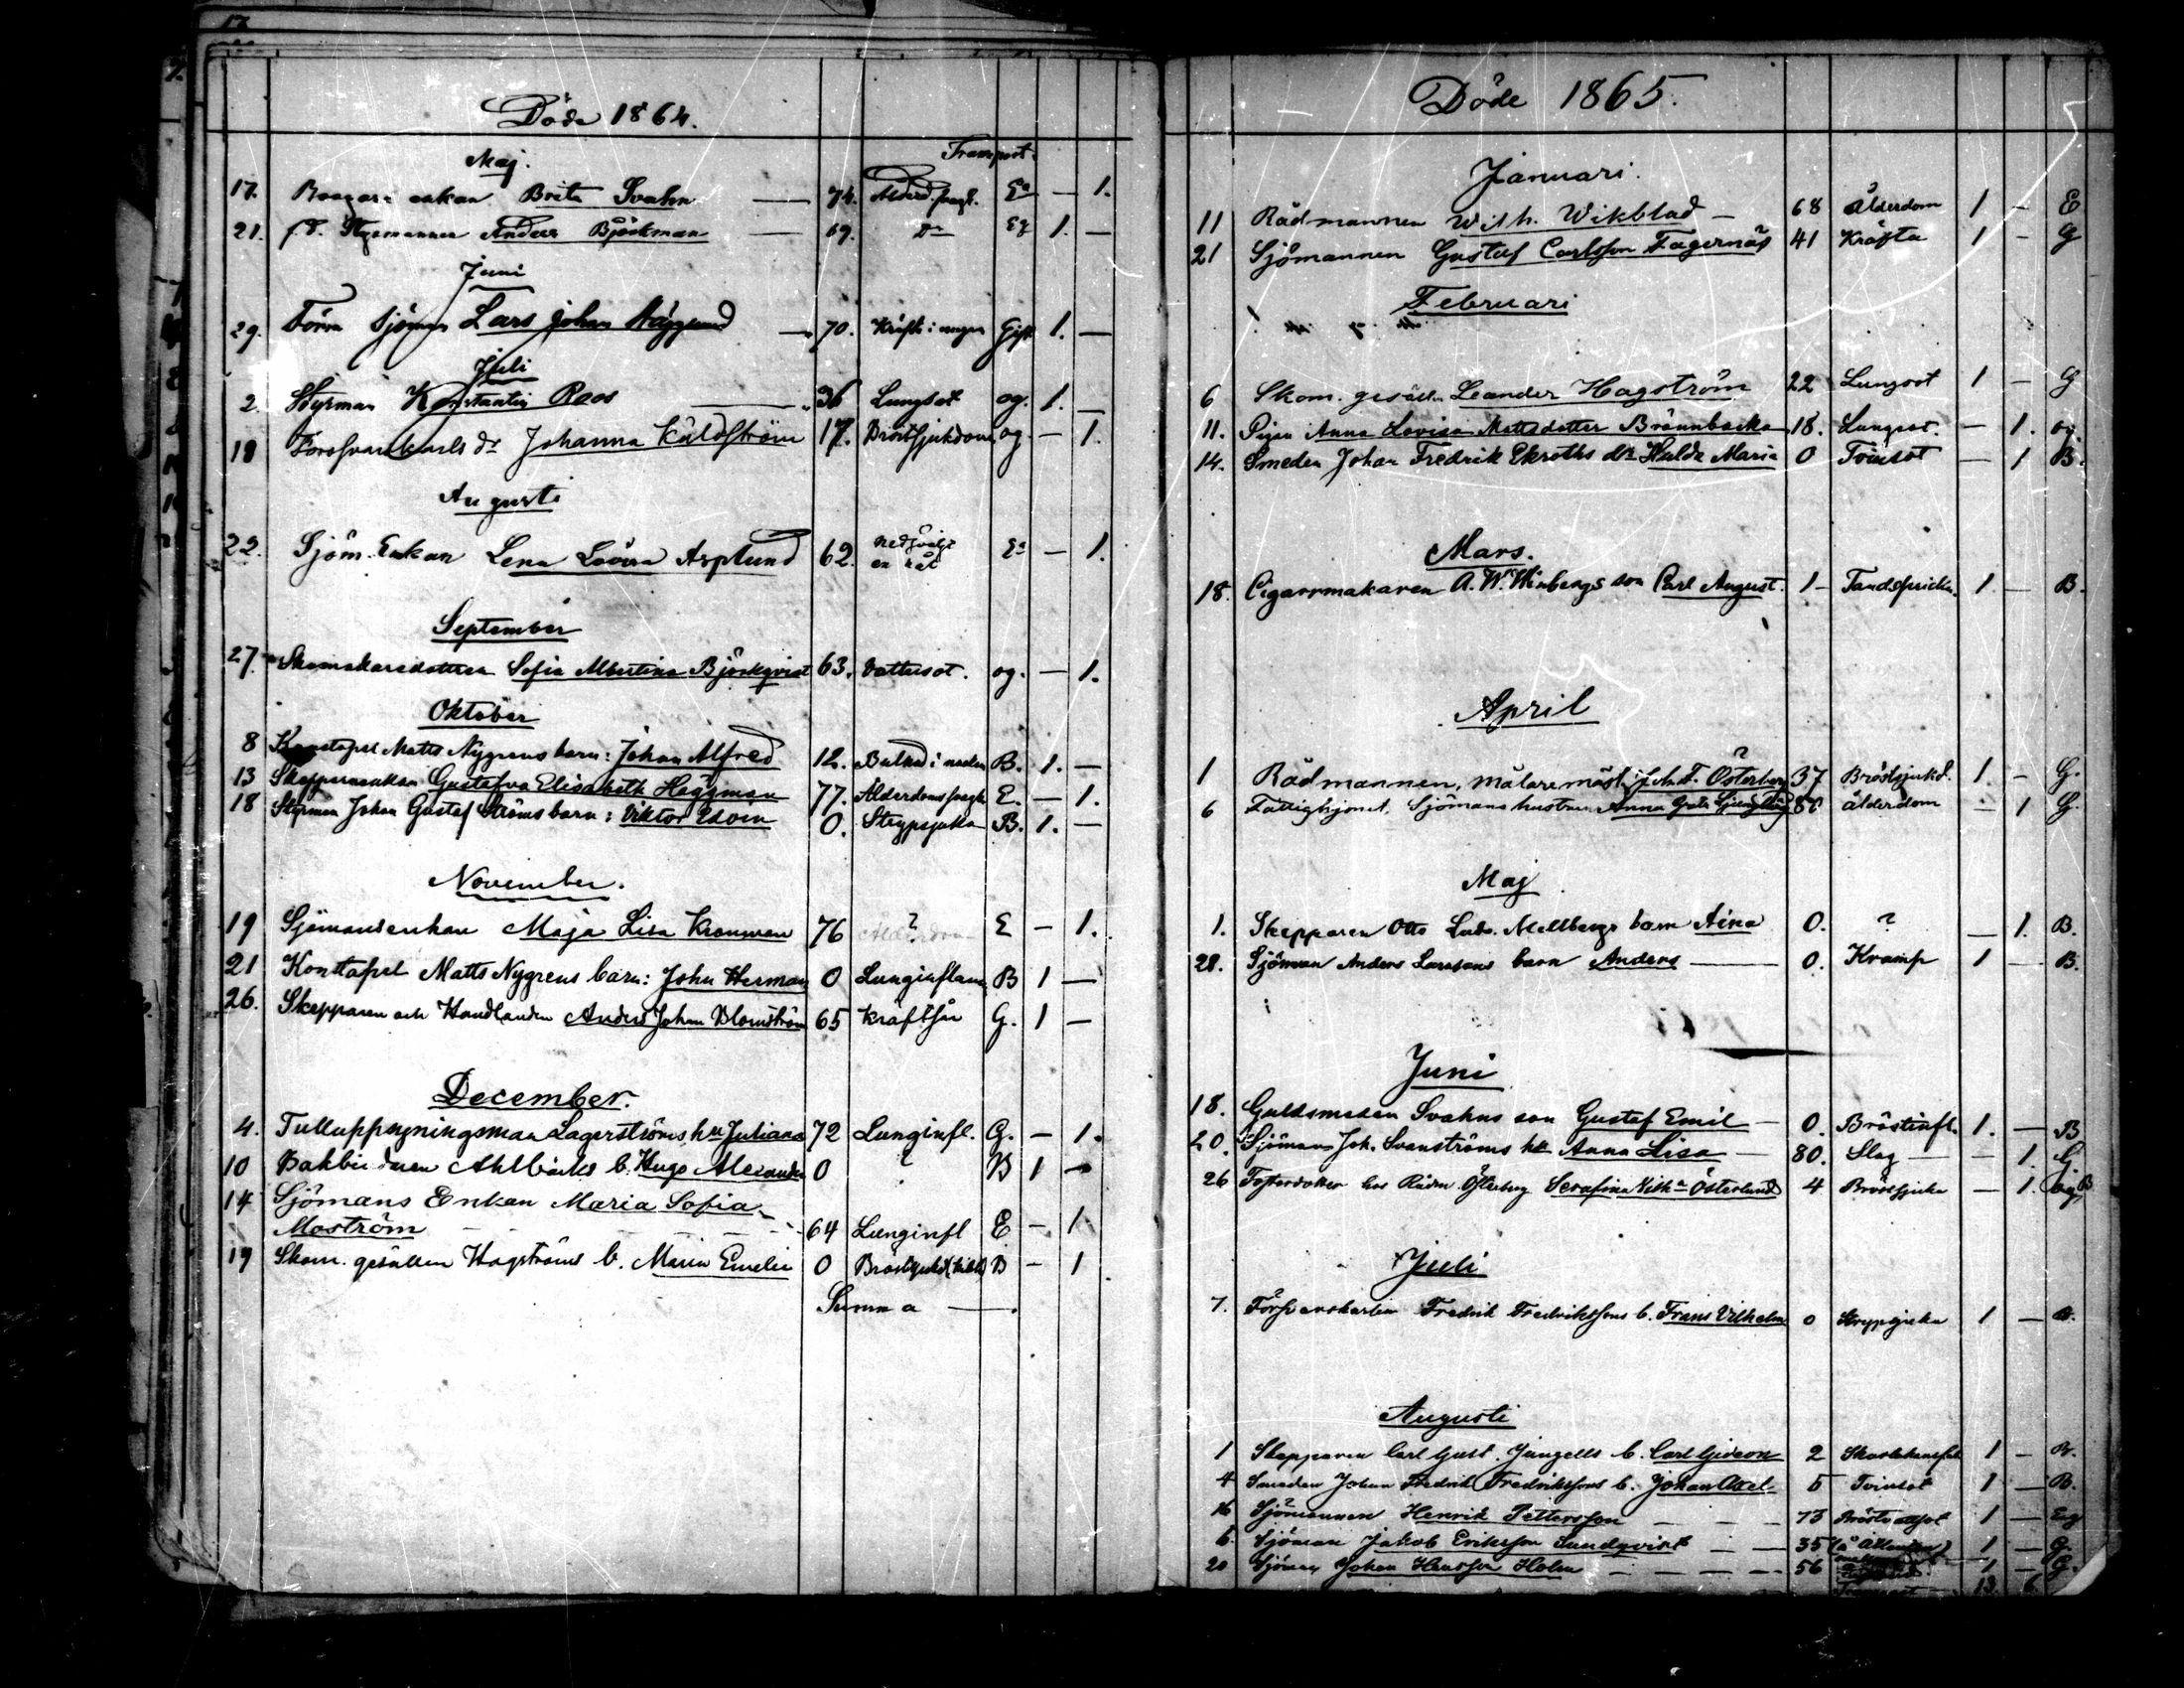 17
Döde 1864.
Maj. Transport
17. enkan Brita Svahn — 74. Ålderd. E — 1.
21. f.d. Styrmannen Anders Björkman — 69. Do Eg 1. —
Juni
29. Förra Sjöman Lars Johan Häggmund — 70. Kräfta i magen Gift 1. —
Juli
2. Styrman Konstantin Roos — 36 Lungsot og. 1. —
18 dr Johanna Kuldström 17. Bröstsjukdom og — 1.
Augusti
22. Sjöm. Enkan Lena Lovisa Asplund 62. en nål E — 1.
September
27. Skomakaredottren Sofia Albertina Björkqvist 63. Vattusot. og. — 1.
Oktober
8 Konstapel Matts Nygrens barn: Johan Alfred 12. Bulnad i B. 1. —
13 Skepparenkan Gustafva Elisabeth Häggman 77. Ålderdoms E. — 1.
18 Styrman Johan Gustaf Ströms barn: Viktor Edvin 0. Strypsjuka B. 1. —
November.
19 Sjömansenkan Maja Lisa Kronman 76 ? E — 1.
21 Konstapel Matts Nygrens barn: John Herman 0 Lunginflam B 1 —
26. Skepparen och Handlanden Anders Johan Blomström 65 Kräftsår G. 1 —
December.
4. Tulluppsyningsman Lagerströms hu Juliana 72 Lunginfl. G. — 1.
10 Ahlbäcks b. Hugo Alexander 0 B 1 —
14 Sjömans Enkan Maria Sofia
Moström 64 Lunginfl E — 1
19 Skom. gesällen Hagströms b. Maria Emelie 0 B — 1
Summa —
Döde 1865.
Januari.
11 Rådmannen Wilh. Wikblad — 68 Ålderdom 1 — E
21 Sjömannen Gustaf Carlsson Fagernäs 41 Kräfta 1 — G
Februari
6 Skom. gesällen Leander Hagström 22 Lungsot 1 — G
11. Pigan Anna Lovisa Mattsdotter Brännbacka 18. Lungsot. — 1. og
14. Smeden Johan Fredrik Ekroths dr Hulda Maria 0 Tvinsot — 1 B.
Mars.
18. Cigarrmakaren A. W. Winbergs son Carl August. 1 — Tandspricka. 1 — B.
April
1 Rådmannen, målaremäst. Joh. F. Österberg 37 Bröstsjukd. 1. — G.
6 Fattighjonet, Sjömans hustrun Anna Greta 80 ålderdom — 1 G.
Maj
1. Skepparen Otto Ludv. Mellbergs barn Aina 0. ? — 1. B.
28. Sjöman Anders Larssons barn Anders — 0. Kramp 1 — B.
Juni
18. Guldsmeden Svahns son Gustaf Emil — 0. Bröstinfl. 1. — B
20. Sjömans Joh. Svanströms hu Anna Lisa — 80. Slag — 1. G
26 Fosterdotter hos Rådm. Österberg Serafina Vilha Österlund 4 Bröstsjuka — 1.
Juli
7. Försvarskarlen Fredrik Fredrikssons b. Frans Vilhelm 0 Strypsjuka 1 — B.
Augusti
1 Skepparen Carl Gust. Jungells b. Carl Gideon 2 1 — B.
4 Smeden Johan Fredrik Fredrikssons b. Johan Axel 5 Tvinsot 1 — B.
16 Sjömannen Henrik Pettersson — 73 1 — Eg
6. Sjöman Jakob Eriksson Sundqvist — 35 1 — G.
20 Sjöman Johan Hansson Holm — 56 1 — G.
Transport — 13. 6.